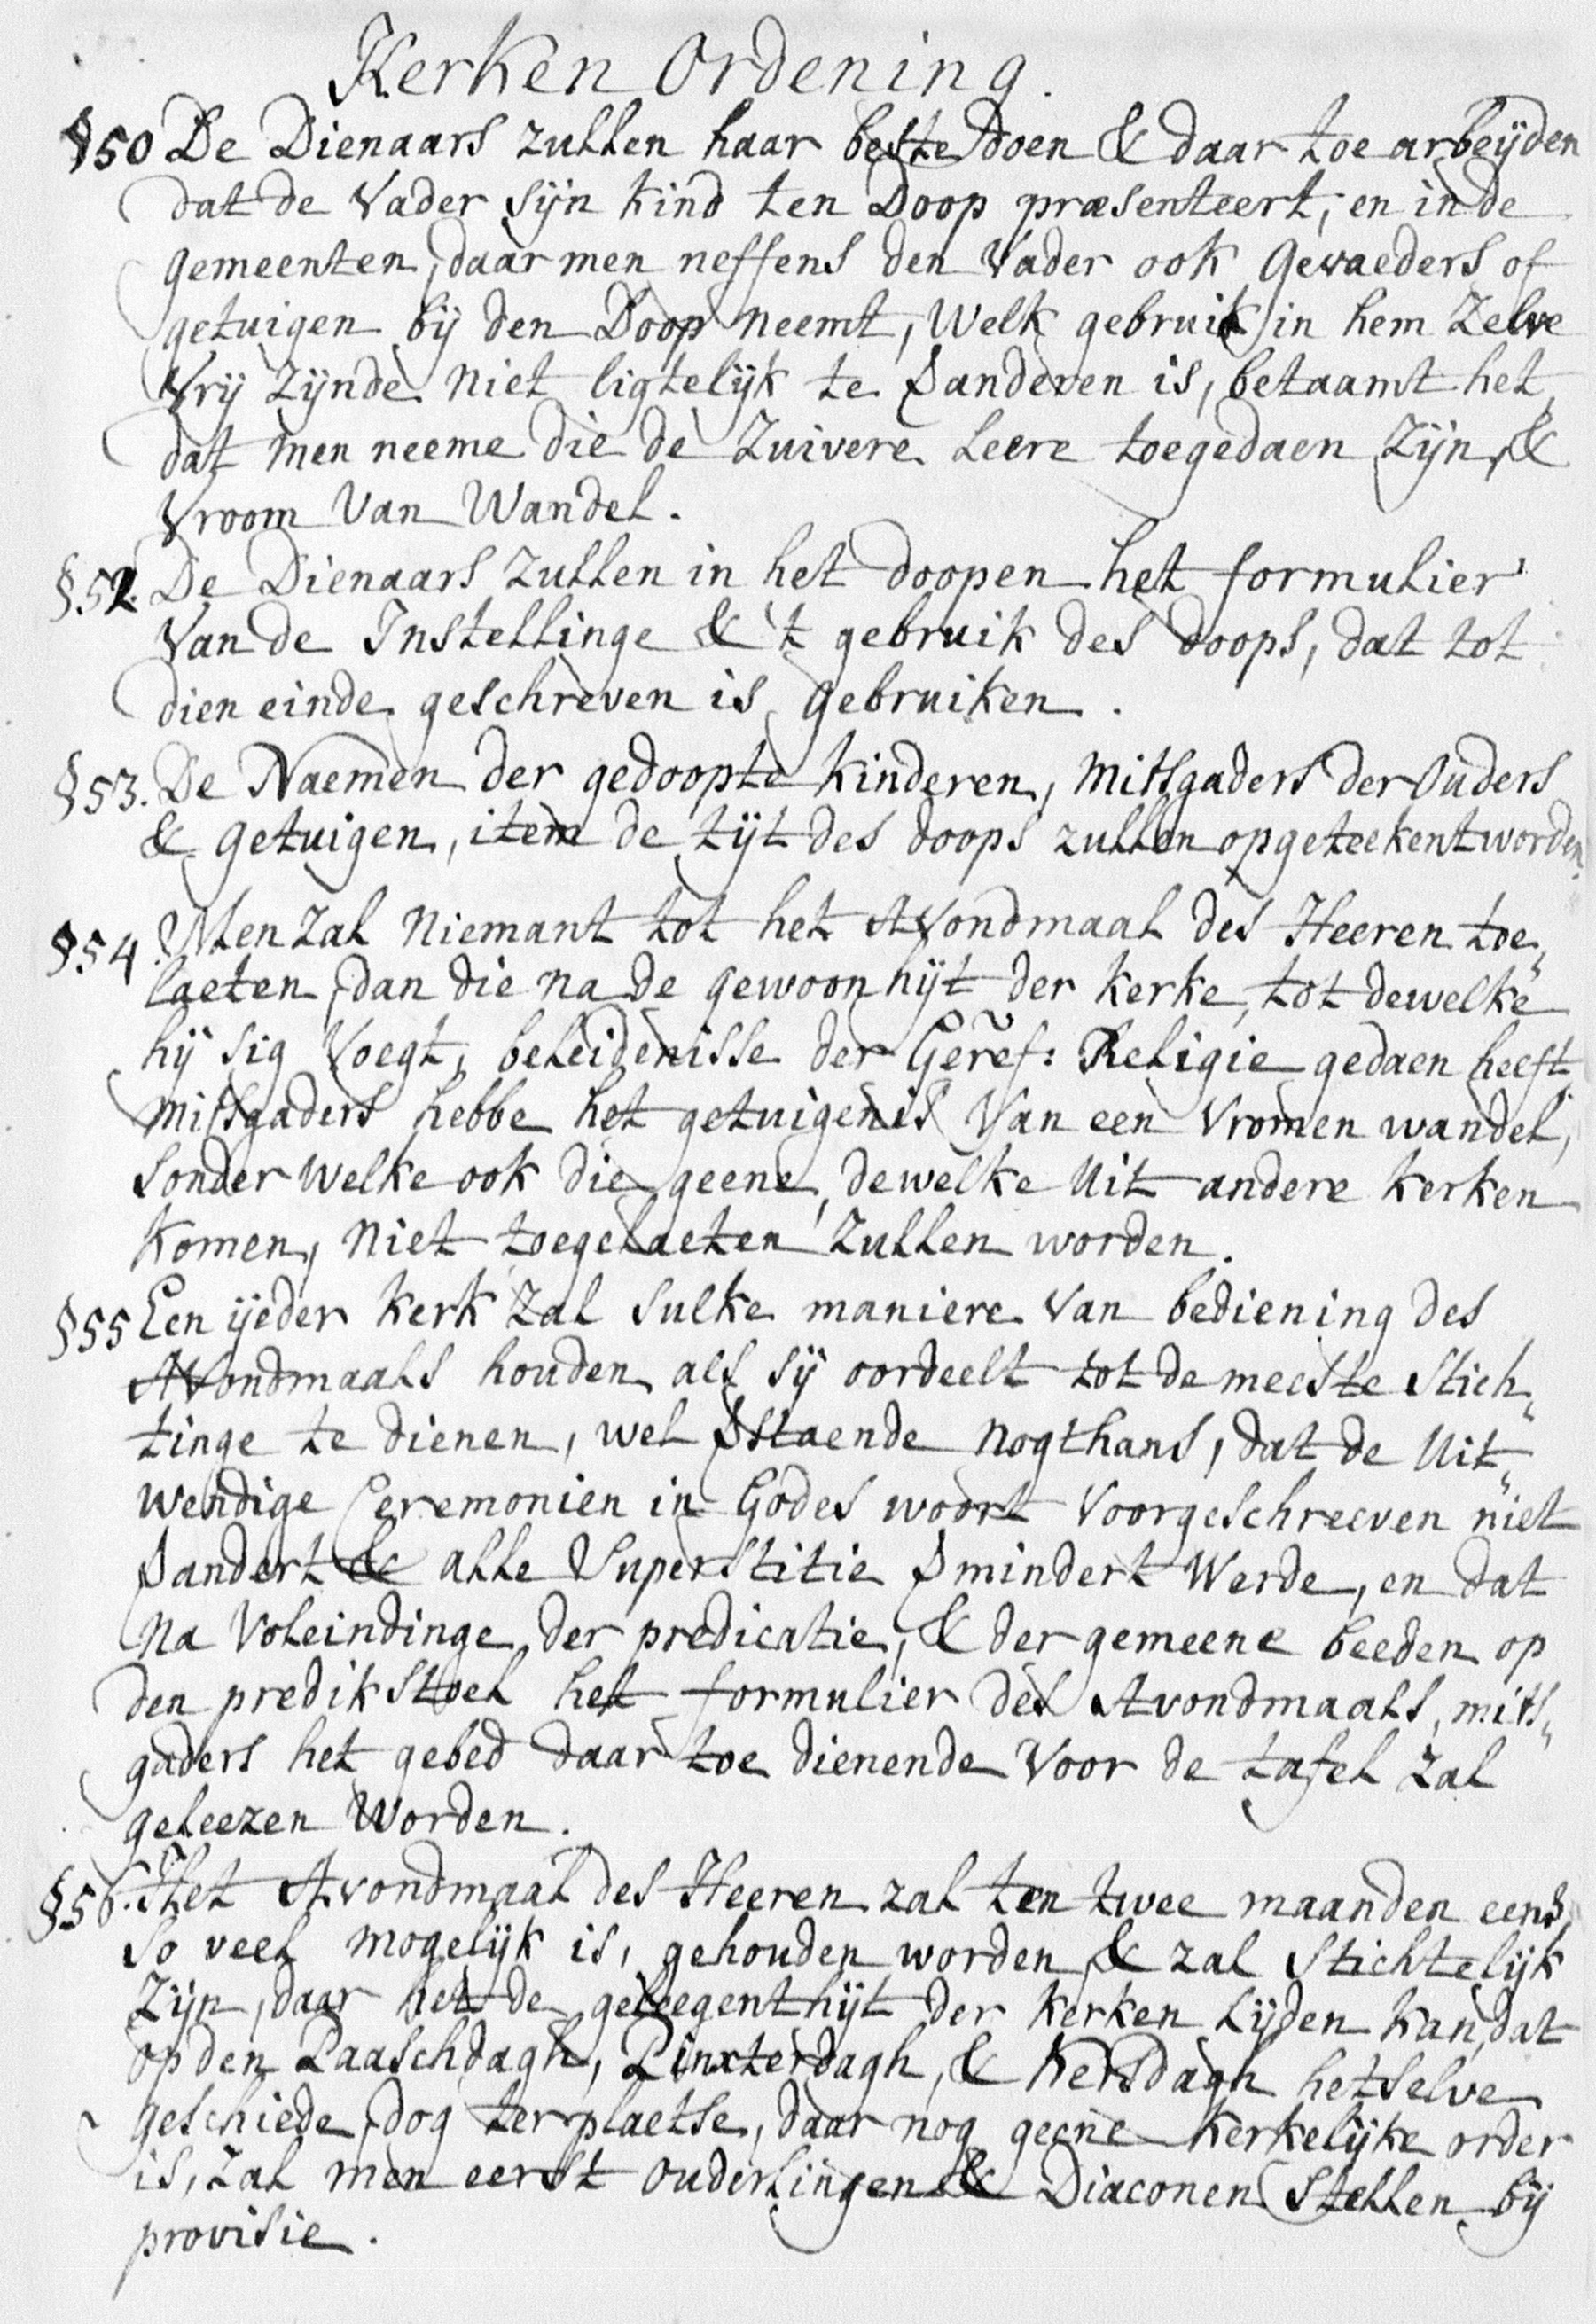 Kerken Ordening.
§50 De Dienaars zullen haar beste doen & daar toe arbeijden
dat de Vader sijn kind ten Doop præsenteert, en in de
gemeenten, daar men neffens den Vader ook Gevaeders of
getuigen bij den Doop neemt, Welk gebruik in hem Zelve
Vrij Zijnde niet ligtelijk te Sanderen is, betaamt het,
dat men neeme die de Zuivere Leere toegedaen Zijn, &
Vroom Van Wandel.
§.52. De Dienaars Zullen in het doopen het formulier
Van de Instellinge & 't gebruik des doops, dat tot
dien einde geschreven is, gebruiken.
§53. De Naemen der gedoopte Kinderen, Mitsgaders der Ouders
& Getuigen, item de tijt des doops zullen opgeteekent worden.
§54. Men Zal Niemant tot het Avondmaal des Heeren toe„
laeten, dan die na de gewoonhijt der Kerke, tot dewelke
hij sig Voegt, beleidenisse der Geref: Religie gedaen heeft,
mitsgaders hebbe het getuigenis Van een Vromen wandel,
sonder welke ook die geene, dewelke Uit andere Kerken
Komen, Niet toegelaeten Zullen worden.
§55 Een ijeder Kerk Zal sulke maniere Van bediening des
Avondmaals houden, als sij oordeelt tot de meeste Stich„
tinge te dienen, wel Sstaende nogthans, dat de Uit„
wendige Ceremonien in Godes woort Voorgeschreeven niet
Sandert & alle Superstitie Smindert Werde, en dat
Na Voleindinge der predicatie, & der gemeene beeden op
den predikstoel het formulier des Avondmaals, mits„
gaders het gebed daar toe dienende Voor de tafel zal
geleezen Worden.
§56. Het Avondmaal des Heeren zal ten twee maanden eens,
so veel mogelijk is, gehouden worden & zal Stichtelijk
Zijn, daar het de geleegenthijt der Kerken Lijden Kan, dat
op den Paaschdagh, Pinxterdagh, & Kersdagh hetselve
geschiede, dog ter plaetse, daar nog geene Kerkelijke order
is, Zal men eerst ouderlingen & Diaconen Stellen bij
provisie.